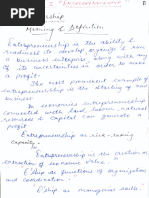 Entrepreneurship
Meaning & Definition
Entrepreneurship is the ability &
readiness to develop, organize & run
a business enterprise, along with any
of its uncertainties in order to make
a profit.
The most prominent example of
entrepreneurship is the starting of new
business.
In economics, entrepreneurship
connected with land, labour, natural
resources & Capital can generate a
profit.
Entrepreneurship as risk-taking
capacity.
Entrepreneurship is the creation or
extraction of economic value.
E'ship as functions of organization
and coordination.
E'ship as managerial skills.